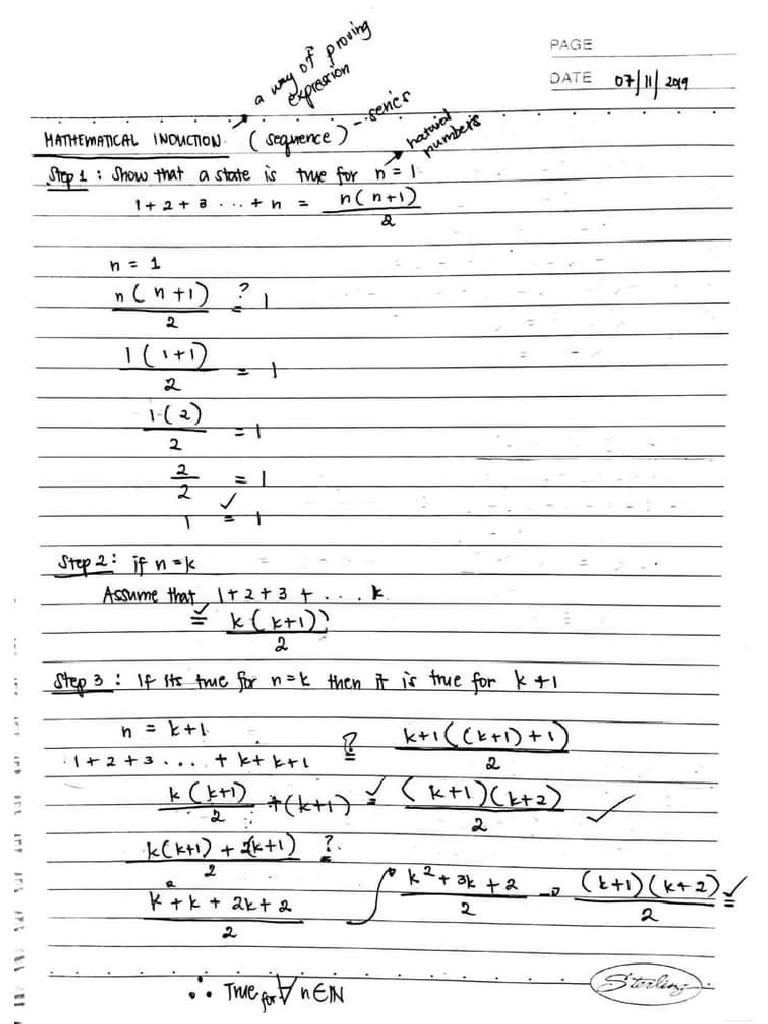 PAGE
DATE 07/11/2019
a way of proving
expression
MATHEMATICAL INDUCTION (sequence) - series
natural
numbers
Step 1: Show that a state is true for n = 1
1 + 2 + 3 ... + n = n(n+1)/2
n = 1
n(n+1)/2 ≟ 1
1(1+1)/2 = 1
1(2)/2 = 1
2/2 = 1
1 = 1 ✓
Step 2: if n = k
Assume that 1 + 2 + 3 + .... k
= ✓ k(k+1))/2
Step 3: If its true for n = k then it is true for k + 1
n = k + 1
1 + 2 + 3 ... + k + k + 1 ≟ k+1((k+1)+1)/2
k(k+1)/2 + (k+1) = ✓ (k+1)(k+2)/2 ✓
k(k+1) + 2(k+1)/2 ≟
k² + k + 2k + 2/2 → k² + 3k + 2/2 → (k+1)(k+2)/2 = ✓
∴ True for ∀ n ∈ ℕ
Sterling